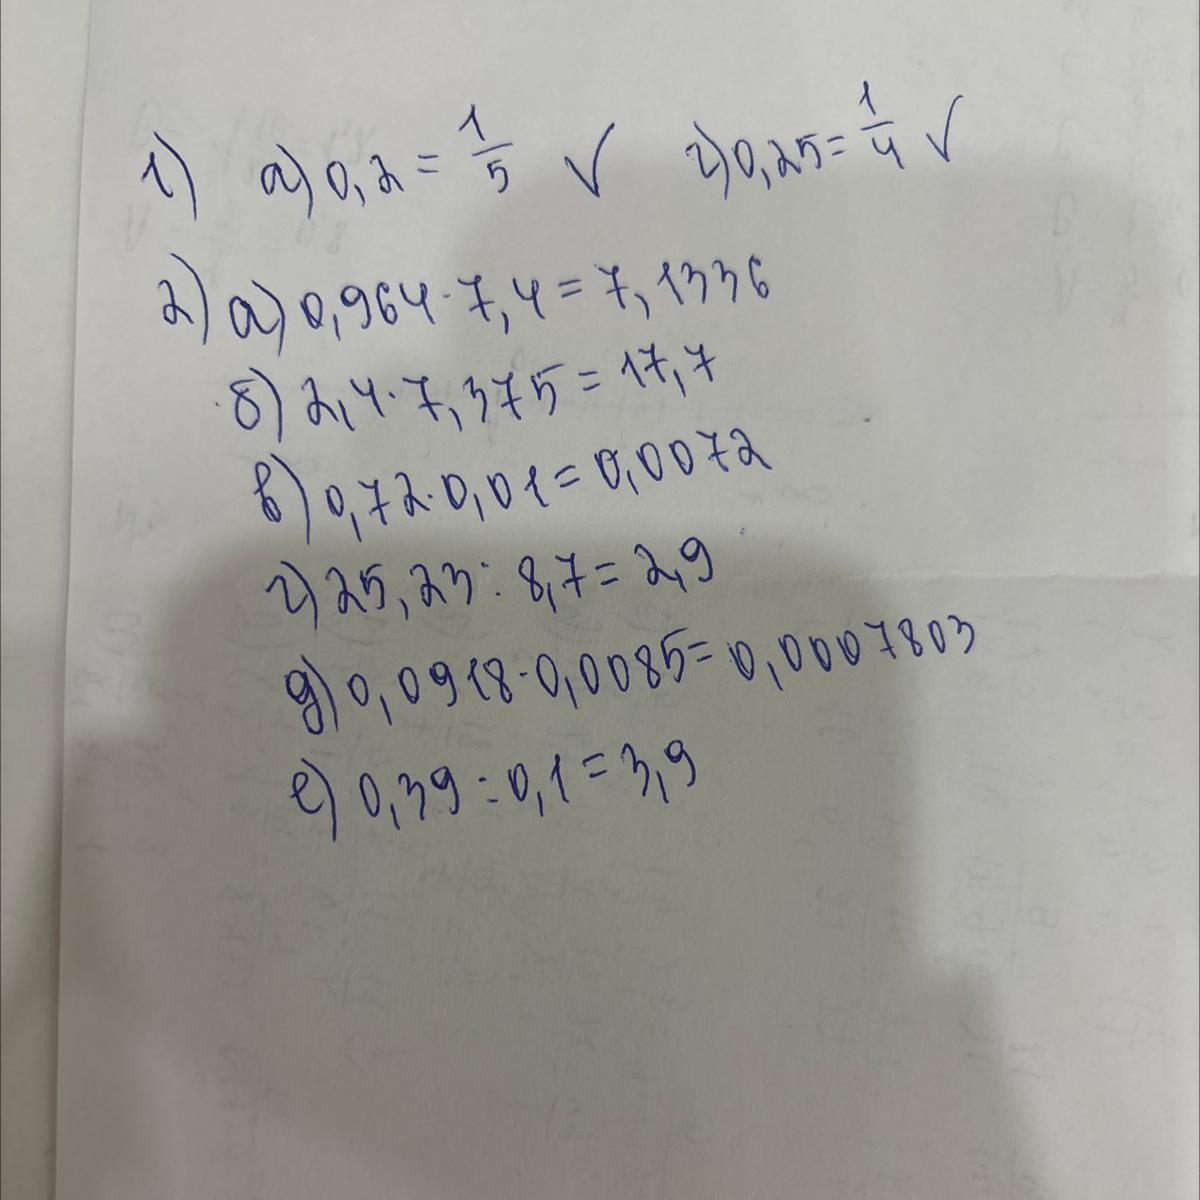 1) а) 0,2 = 1/5 ✓ г) 0,25 = 1/4 ✓
2) а) 0,964 · 7,4 = 7,1336
б) 2,4 · 7,375 = 17,7
в) 0,72 · 0,01 = 0,0072
г) 25,23 : 8,7 = 2,9
д) 0,0918 · 0,0085 = 0,0007803
е) 0,39 : 0,1 = 3,9